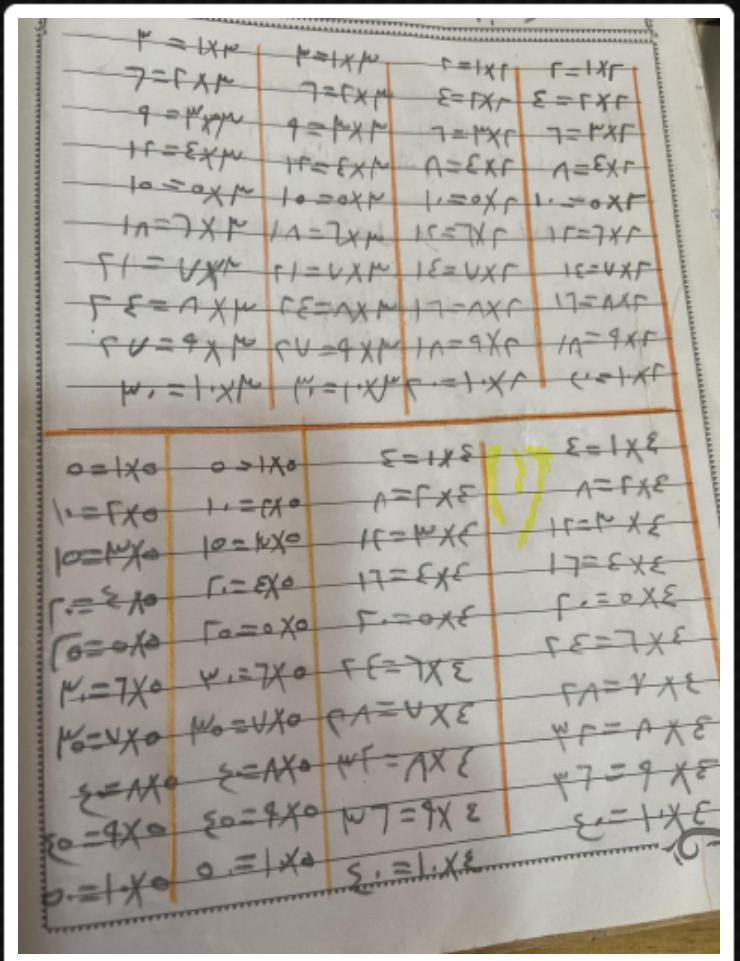 ٢×١=٢ ٢×١=٢ ٣×١=٣ ٣×١=٣
٢×٢=٤ ٢×٢=٤ ٣×٢=٦ ٣×٢=٦
٢×٣=٦ ٢×٣=٦ ٣×٣=٩ ٣×٣=٩
٢×٤=٨ ٢×٤=٨ ٣×٤=١٢ ٣×٤=١٢
٢×٥=١٠ ٢×٥=١٠ ٣×٥=١٥ ٣×٥=١٥
٢×٦=١٢ ٢×٦=١٢ ٣×٦=١٨ ٣×٦=١٨
٢×٧=١٤ ٢×٧=١٤ ٣×٧=٢١ ٣×٧=٢١
٢×٨=١٦ ٢×٨=١٦ ٣×٨=٢٤ ٣×٨=٢٤
٢×٩=١٨ ٢×٩=١٨ ٣×٩=٢٧ ٣×٩=٢٧
٢×١٠=٢٠ ٢×١٠=٢٠ ٣×١٠=٣٠ ٣×١٠=٣٠
٤×١=٤ ٤×١=٤ ٥×١=٥ ٥×١=٥
٤×٢=٨ ٤×٢=٨ ٥×٢=١٠ ٥×٢=١٠
٤×٣=١٢ ٤×٣=١٢ ٥×٣=١٥ ٥×٣=١٥
٤×٤=١٦ ٤×٤=١٦ ٥×٤=٢٠ ٥×٤=٢٠
٤×٥=٢٠ ٤×٥=٢٠ ٥×٥=٢٥ ٥×٥=٢٥
٤×٦=٢٤ ٤×٦=٢٤ ٥×٦=٣٠ ٥×٦=٣٠
٤×٧=٢٨ ٤×٧=٢٨ ٥×٧=٣٥ ٥×٧=٣٥
٤×٨=٣٢ ٤×٨=٣٢ ٥×٨=٤٠ ٥×٨=٤٠
٤×٩=٣٦ ٤×٩=٣٦ ٥×٩=٤٥ ٥×٩=٤٥
٤×١٠=٤٠ ٤×١٠=٤٠ ٥×١٠=٥٠ ٥×١٠=٥٠